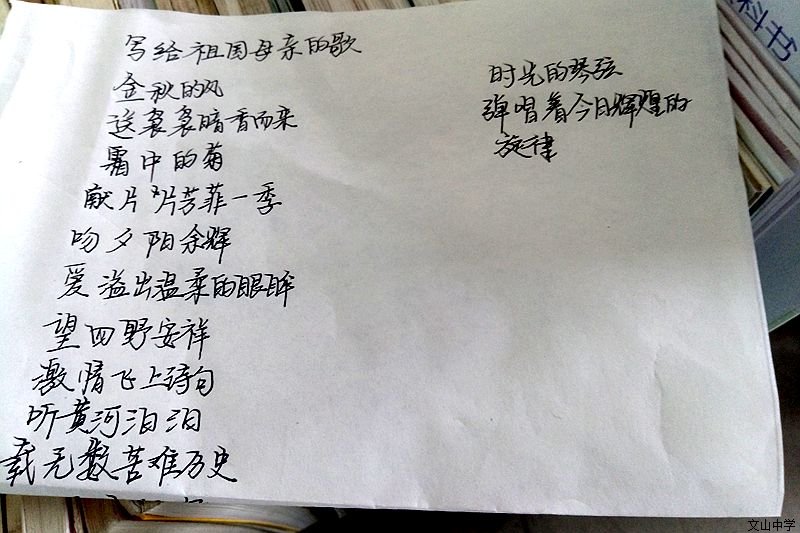 写给祖国母亲的歌
金秋的风
送袅袅暗香而来
霜中的菊
献片片芳菲一季
吻夕阳余辉
爱溢出温柔的眼眸
望四野安祥
激情飞上诗句
听黄河汩汩
载无数苦难历史
时光的琴弦
弹唱着今日辉煌的
旋律
科书
文山中学